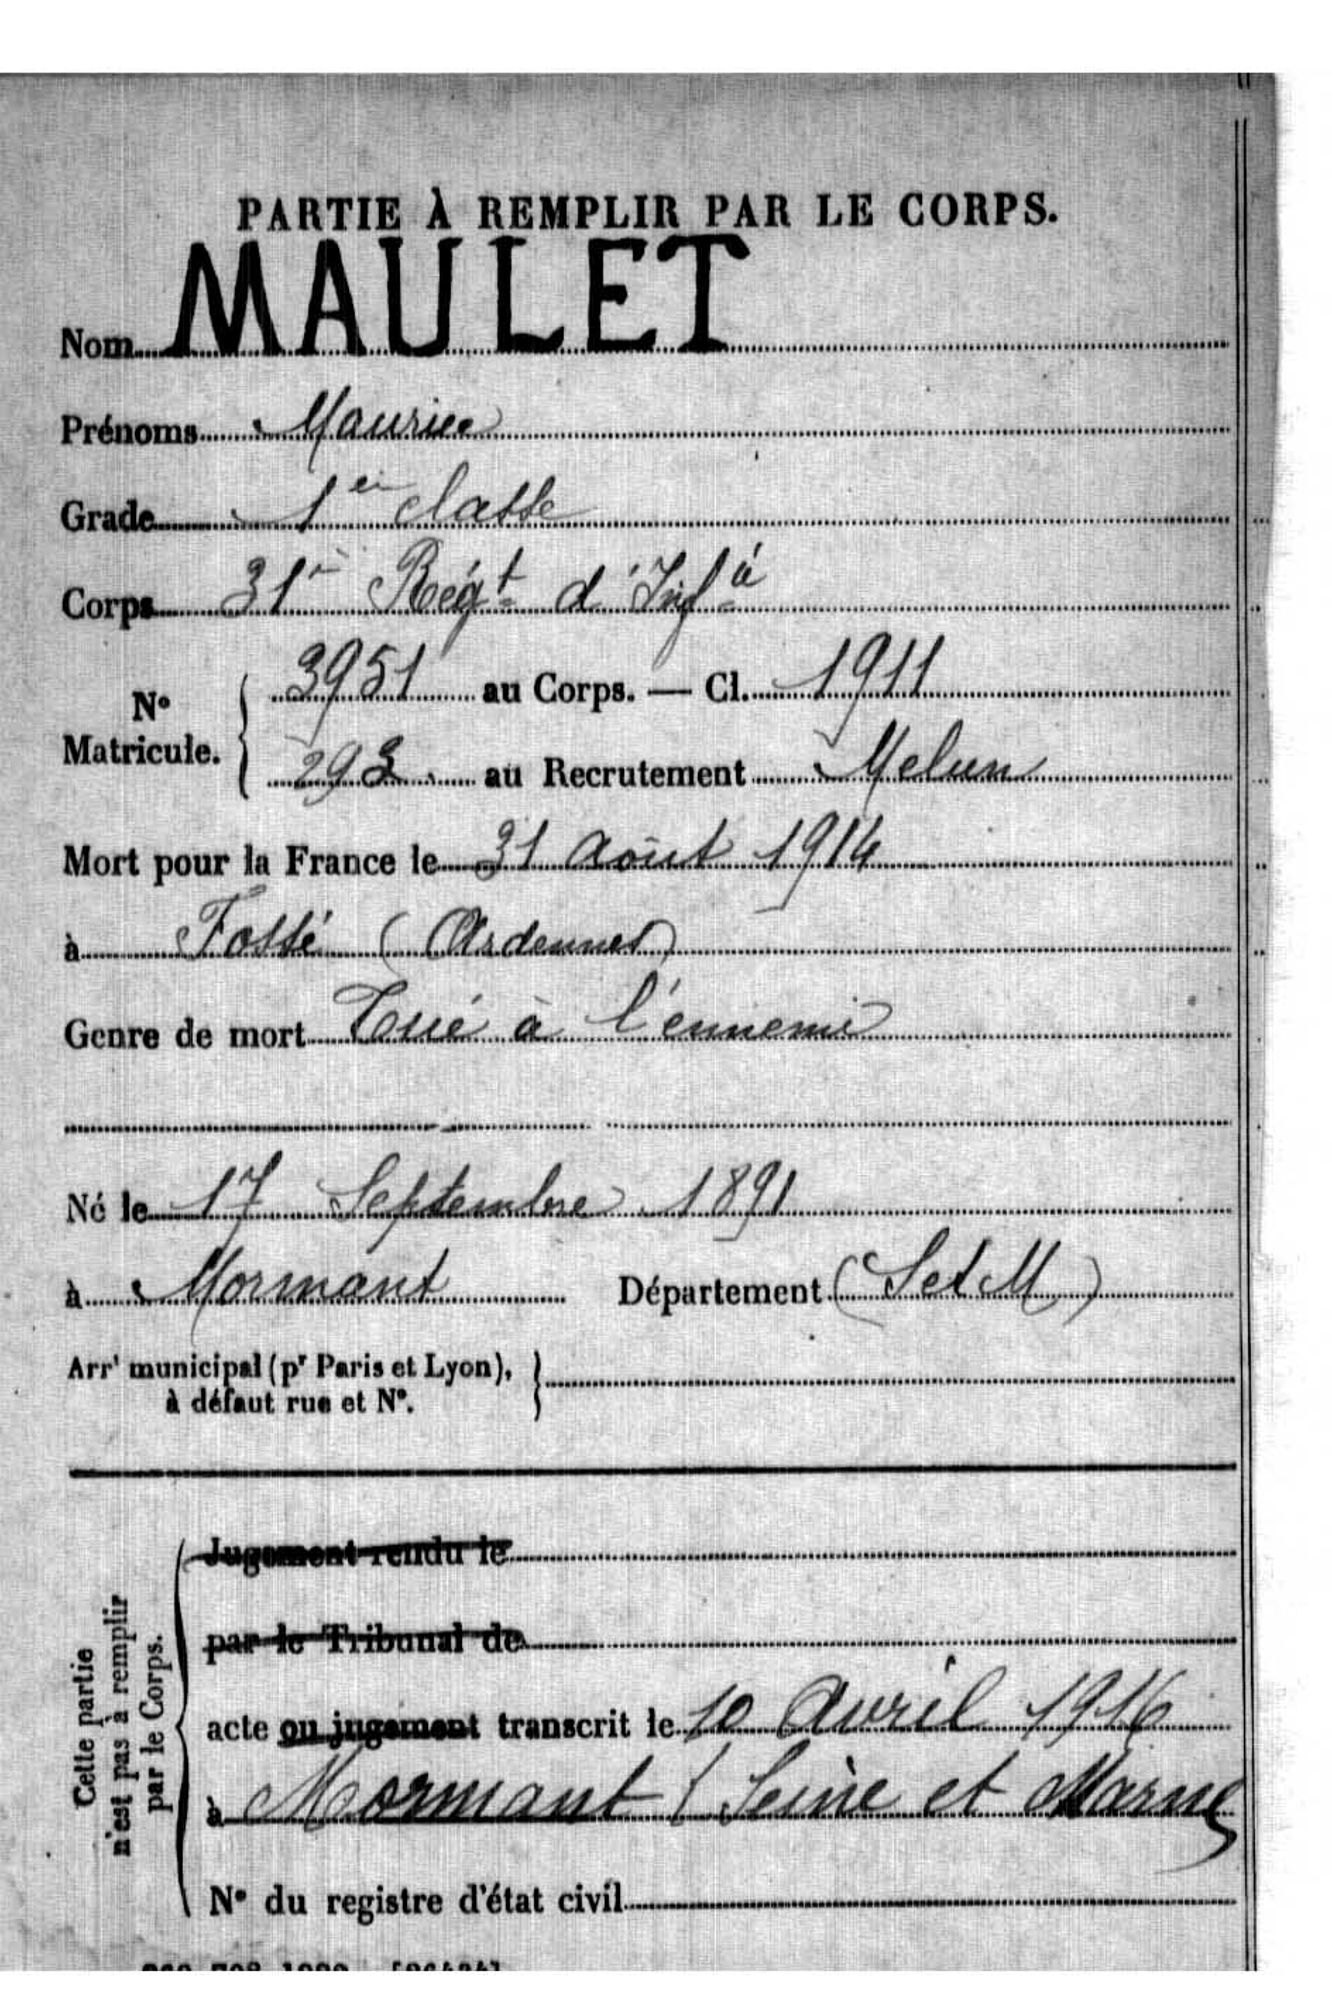 PARTIE À REMPLIR PAR LE CORPS.
Nom MAULET
Prénoms Maurice
Grade 1er classe
Corps 31e Régt d'Infie
No Matricule. 3951 au Corps. — Cl. 1911
293 au Recrutement Melun
Mort pour la France le 31 Août 1914
à Fossé (Ardennes)
Genre de mort Tué à l'ennemi
Né le 17 Septembre 1891
à Mormant Département (S et M)
Arrt municipal (pr Paris et Lyon),
à défaut rue et No.
Cette partie
n'est pas à remplir
par le Corps.
Jugement rendu le
par le Tribunal de
acte ou jugement transcrit le 10 Avril 1916
à Mormant (Seine et Marne
No du registre d'état civil